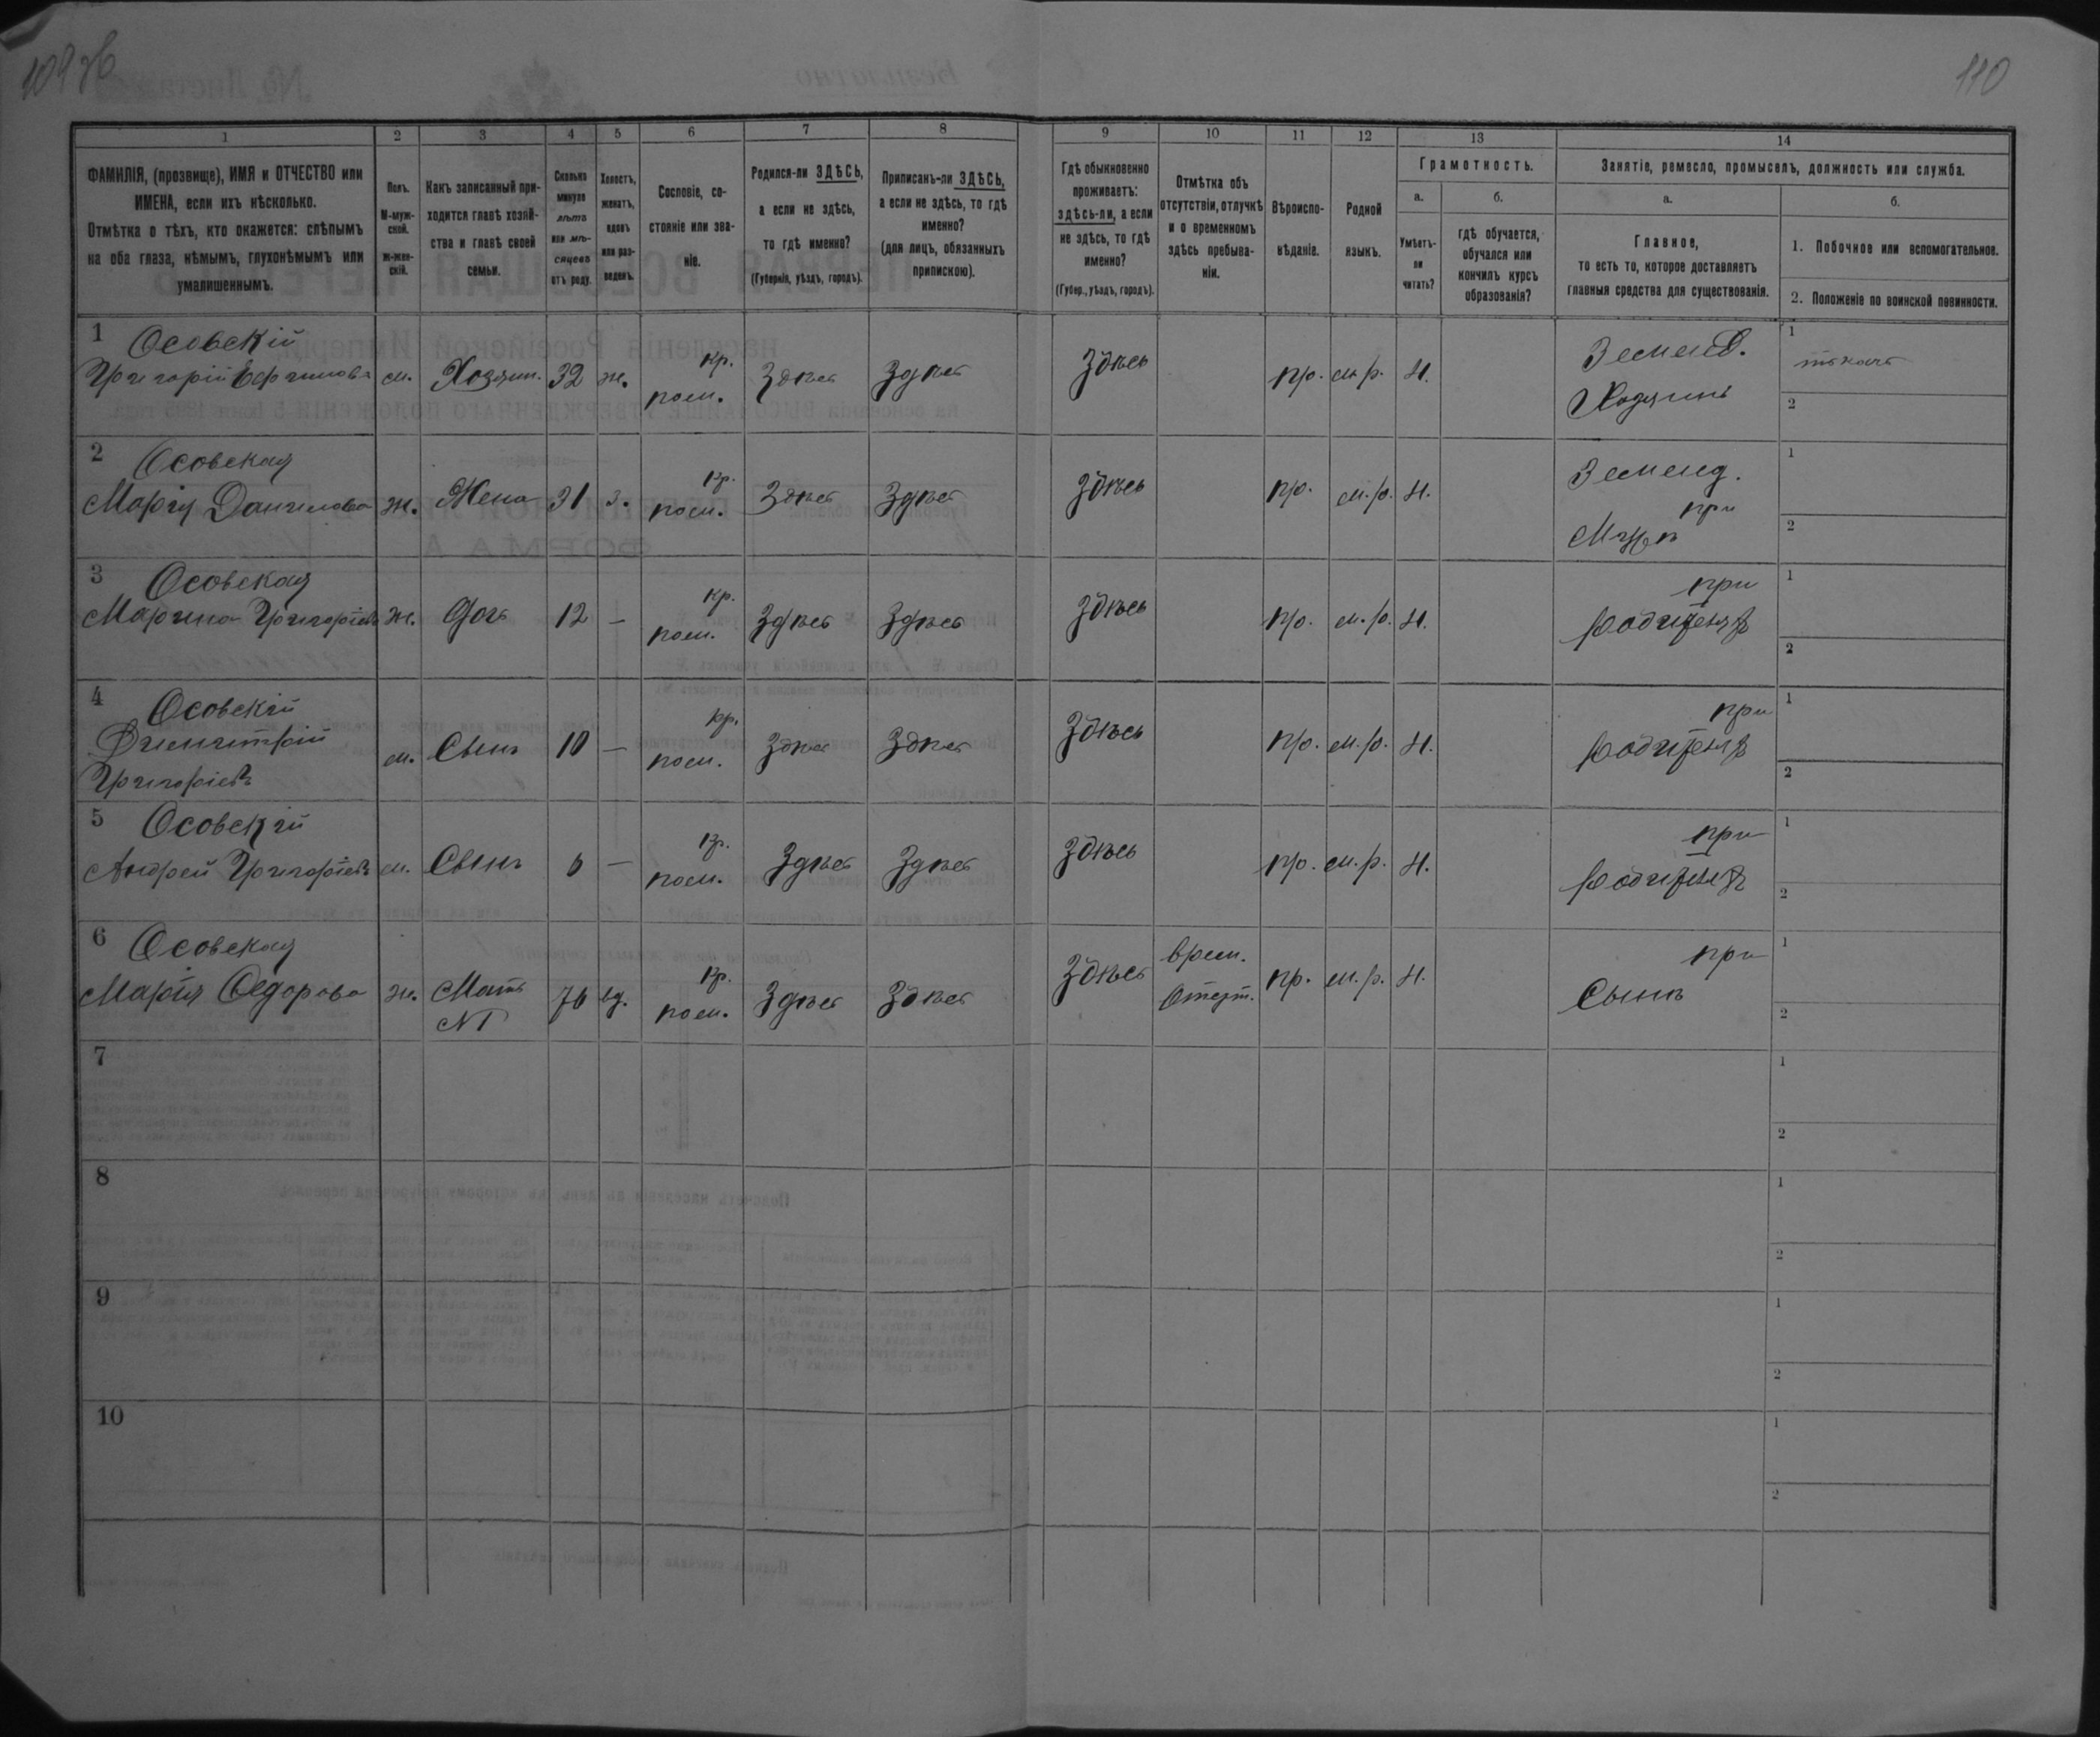 109 об
110
1
2
3
4
5
6
7
8
9
10
11
12
13
14
ФАМИЛІЯ, (прозвище), ИМЯ и ОТЧЕСТВО или
ИМЕНА, если ихъ нѣсколько.
Отмѣтка о тѣхъ, кто окажется: слѣпымъ
на оба глаза, нѣмымъ, глухонѣмымъ или
умалишеннымъ.
Полъ.
М-муж-
ской.
Ж-жен-
скій.
Какъ записанный при-
ходится главѣ хозяй-
ства и главѣ своей
семьи.
Сколько
минуло
лѣтъ
или мѣ-
сяцевъ
отъ роду.
Холостъ,
женатъ,
вдовъ
или раз-
веденъ.
Сословіе, со-
стояніе или зва-
ніе.
Родился-ли ЗДѢСЬ,
а если не здѣсь,
то гдѣ именно?
(Губернія, уѣздъ, городъ).
Приписанъ-ли ЗДѢСЬ,
а если не здѣсь, то гдѣ
именно?
(для лицъ, обязанныхъ
припискою).
Гдѣ обыкновенно
проживаетъ:
здѣсь-ли, а если
не здѣсь, то гдѣ
именно?
(Губер., уѣздъ, городъ).
Отмѣтка объ
отсутствіи, отлучкѣ
и о временномъ
здѣсь пребыва-
ніи.
Вѣроиспо-
вѣданіе.
Родной
языкъ.
Грамотность.
а.
Умѣетъ-
ли
читать?
б.
гдѣ обучается,
обучался или
кончилъ курсъ
образованія?
Занятіе, ремесло, промыселъ, должность или служба.
а.
Главное,
то есть то, которое доставляетъ
главныя средства для существованія.
б.
1. Побочное или вспомогательное.
2. Положеніе по воинской повинности.
1 Осовскій
Григорій м. Хозяин. 32 ж. кр. пом. Здѣсь Здѣсь Здѣсь пр. м.р. Н. Землед. Хозяинъ 1 ткачъ
2
2 Осовская
Марія Данилова ж. Жена 31 з. кр. пом. Здѣсь Здѣсь Здѣсь пр. м.р. Н. Землед. при Мужѣ 1
2
3 Осовская
Марина Григоріев ж. Дочь 12 – кр. пом. Здѣсь Здѣсь Здѣсь пр. м.р. Н. при родителяхъ 1
2
4 Осовскій
Димитрій
Григоріевъ м. Сынъ 10 – кр. пом. Здѣсь Здѣсь Здѣсь пр. м.р. Н. при родителяхъ 1
2
5 Осовскій
Андрей Григоріевъ м. Сынъ 6 – кр. пом. Здѣсь Здѣсь Здѣсь пр. м.р. Н. при родителяхъ 1
2
6 Осовская
Марія Ѳедорова ж. Мать N1 76 вд. кр. пом. Здѣсь Здѣсь Здѣсь врем. пр. м.р. Н. при Сынѣ 1
2
7
1
2
8
1
2
9
1
2
10
1
2